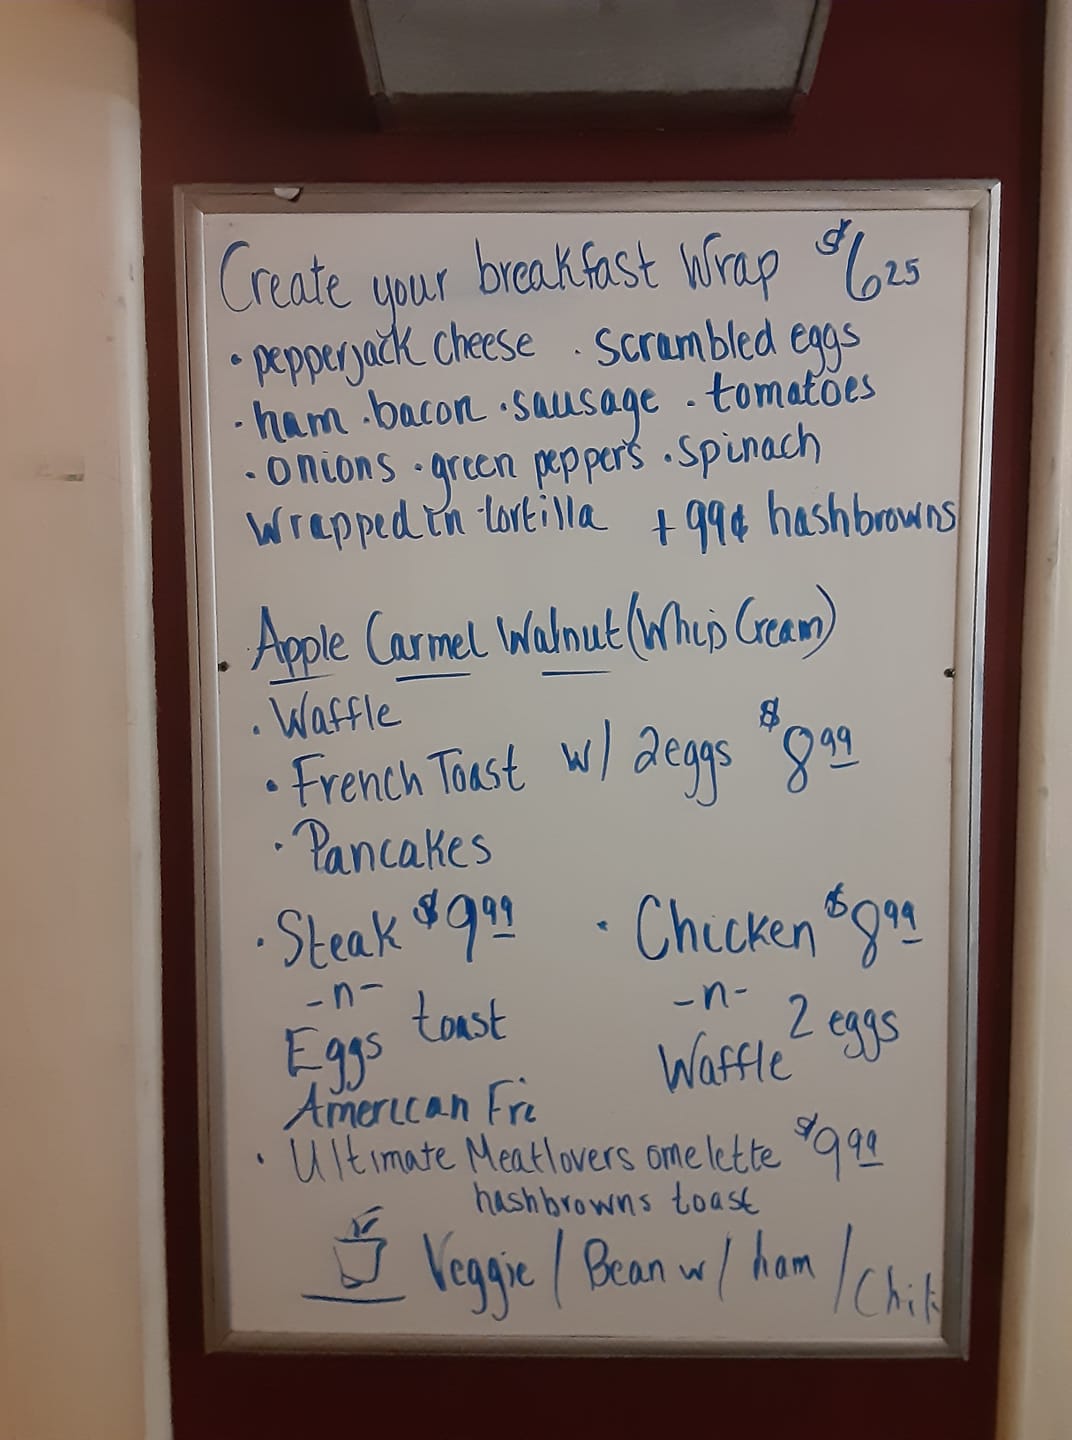 Create your breakfast Wrap $6 25
• pepperjack cheese . scrambled eggs
• ham • bacon • sausage . tomatoes
• onions • green peppers • spinach
Wrapped in tortilla + 99¢ hashbrowns
Apple Carmel Walnut (Whip Cream)
• Waffle
• French Toast w/ 2 eggs $8 99
• Pancakes
• Steak $9 99 • Chicken $8 99
-n- -n-
Eggs toast Waffle 2 eggs
American Fri
• Ultimate Meatlovers omelette $9 99
hashbrowns toast
Veggie / Bean w/ ham / Chili